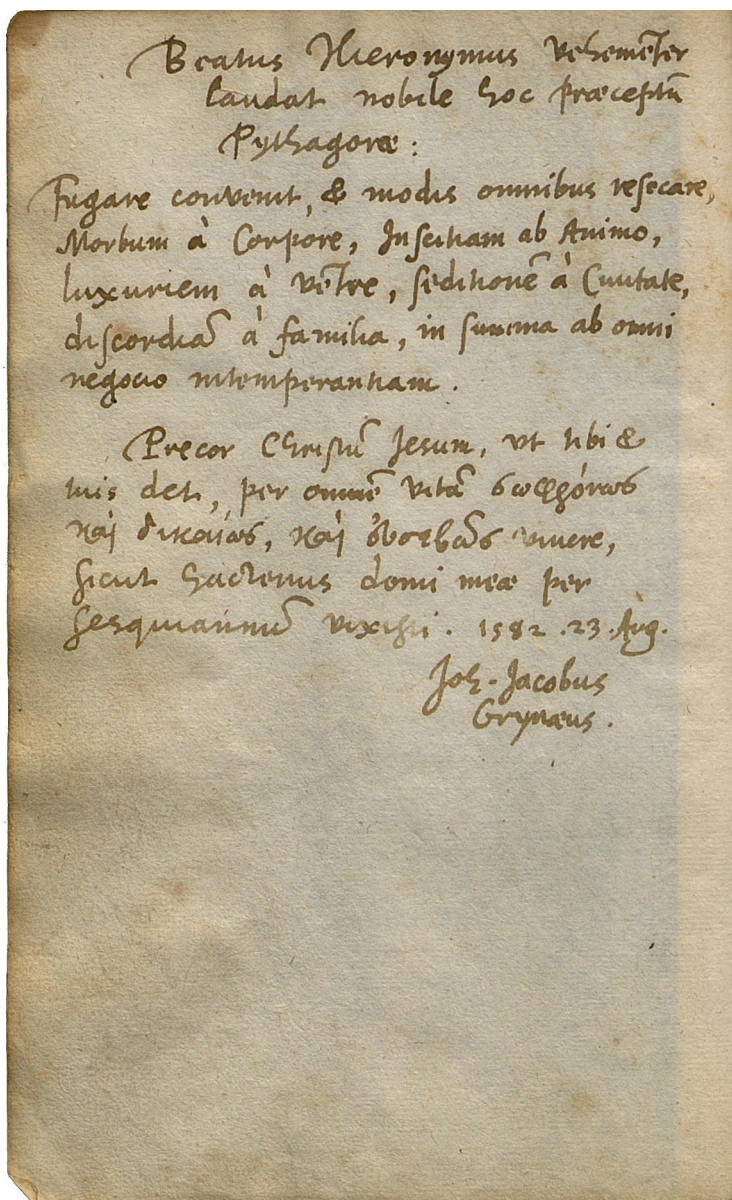 Beatus Hieronymus vehemēter
laudat nobile hoc præceptū
Pythagoræ:
Fugare convenit, & modis omnibus resecare,
Morbum à Corpore, Inscitiam ab Animo,
luxuriem à vētre, seditionē à Civitate,
discordiā à familia, in summa ab omni
negocio intemperantiam.
Precor Christū Jesum, ut tibi &
tuis det, per omnē vitā σωφρόνως
καὶ δικαίως, καὶ εὐσεβῶς vivere,
sicut hactenus domi meæ per
sesquiannū vixisti. 1582. 23. Aug.
Joh. Jacobus
Grynæus.